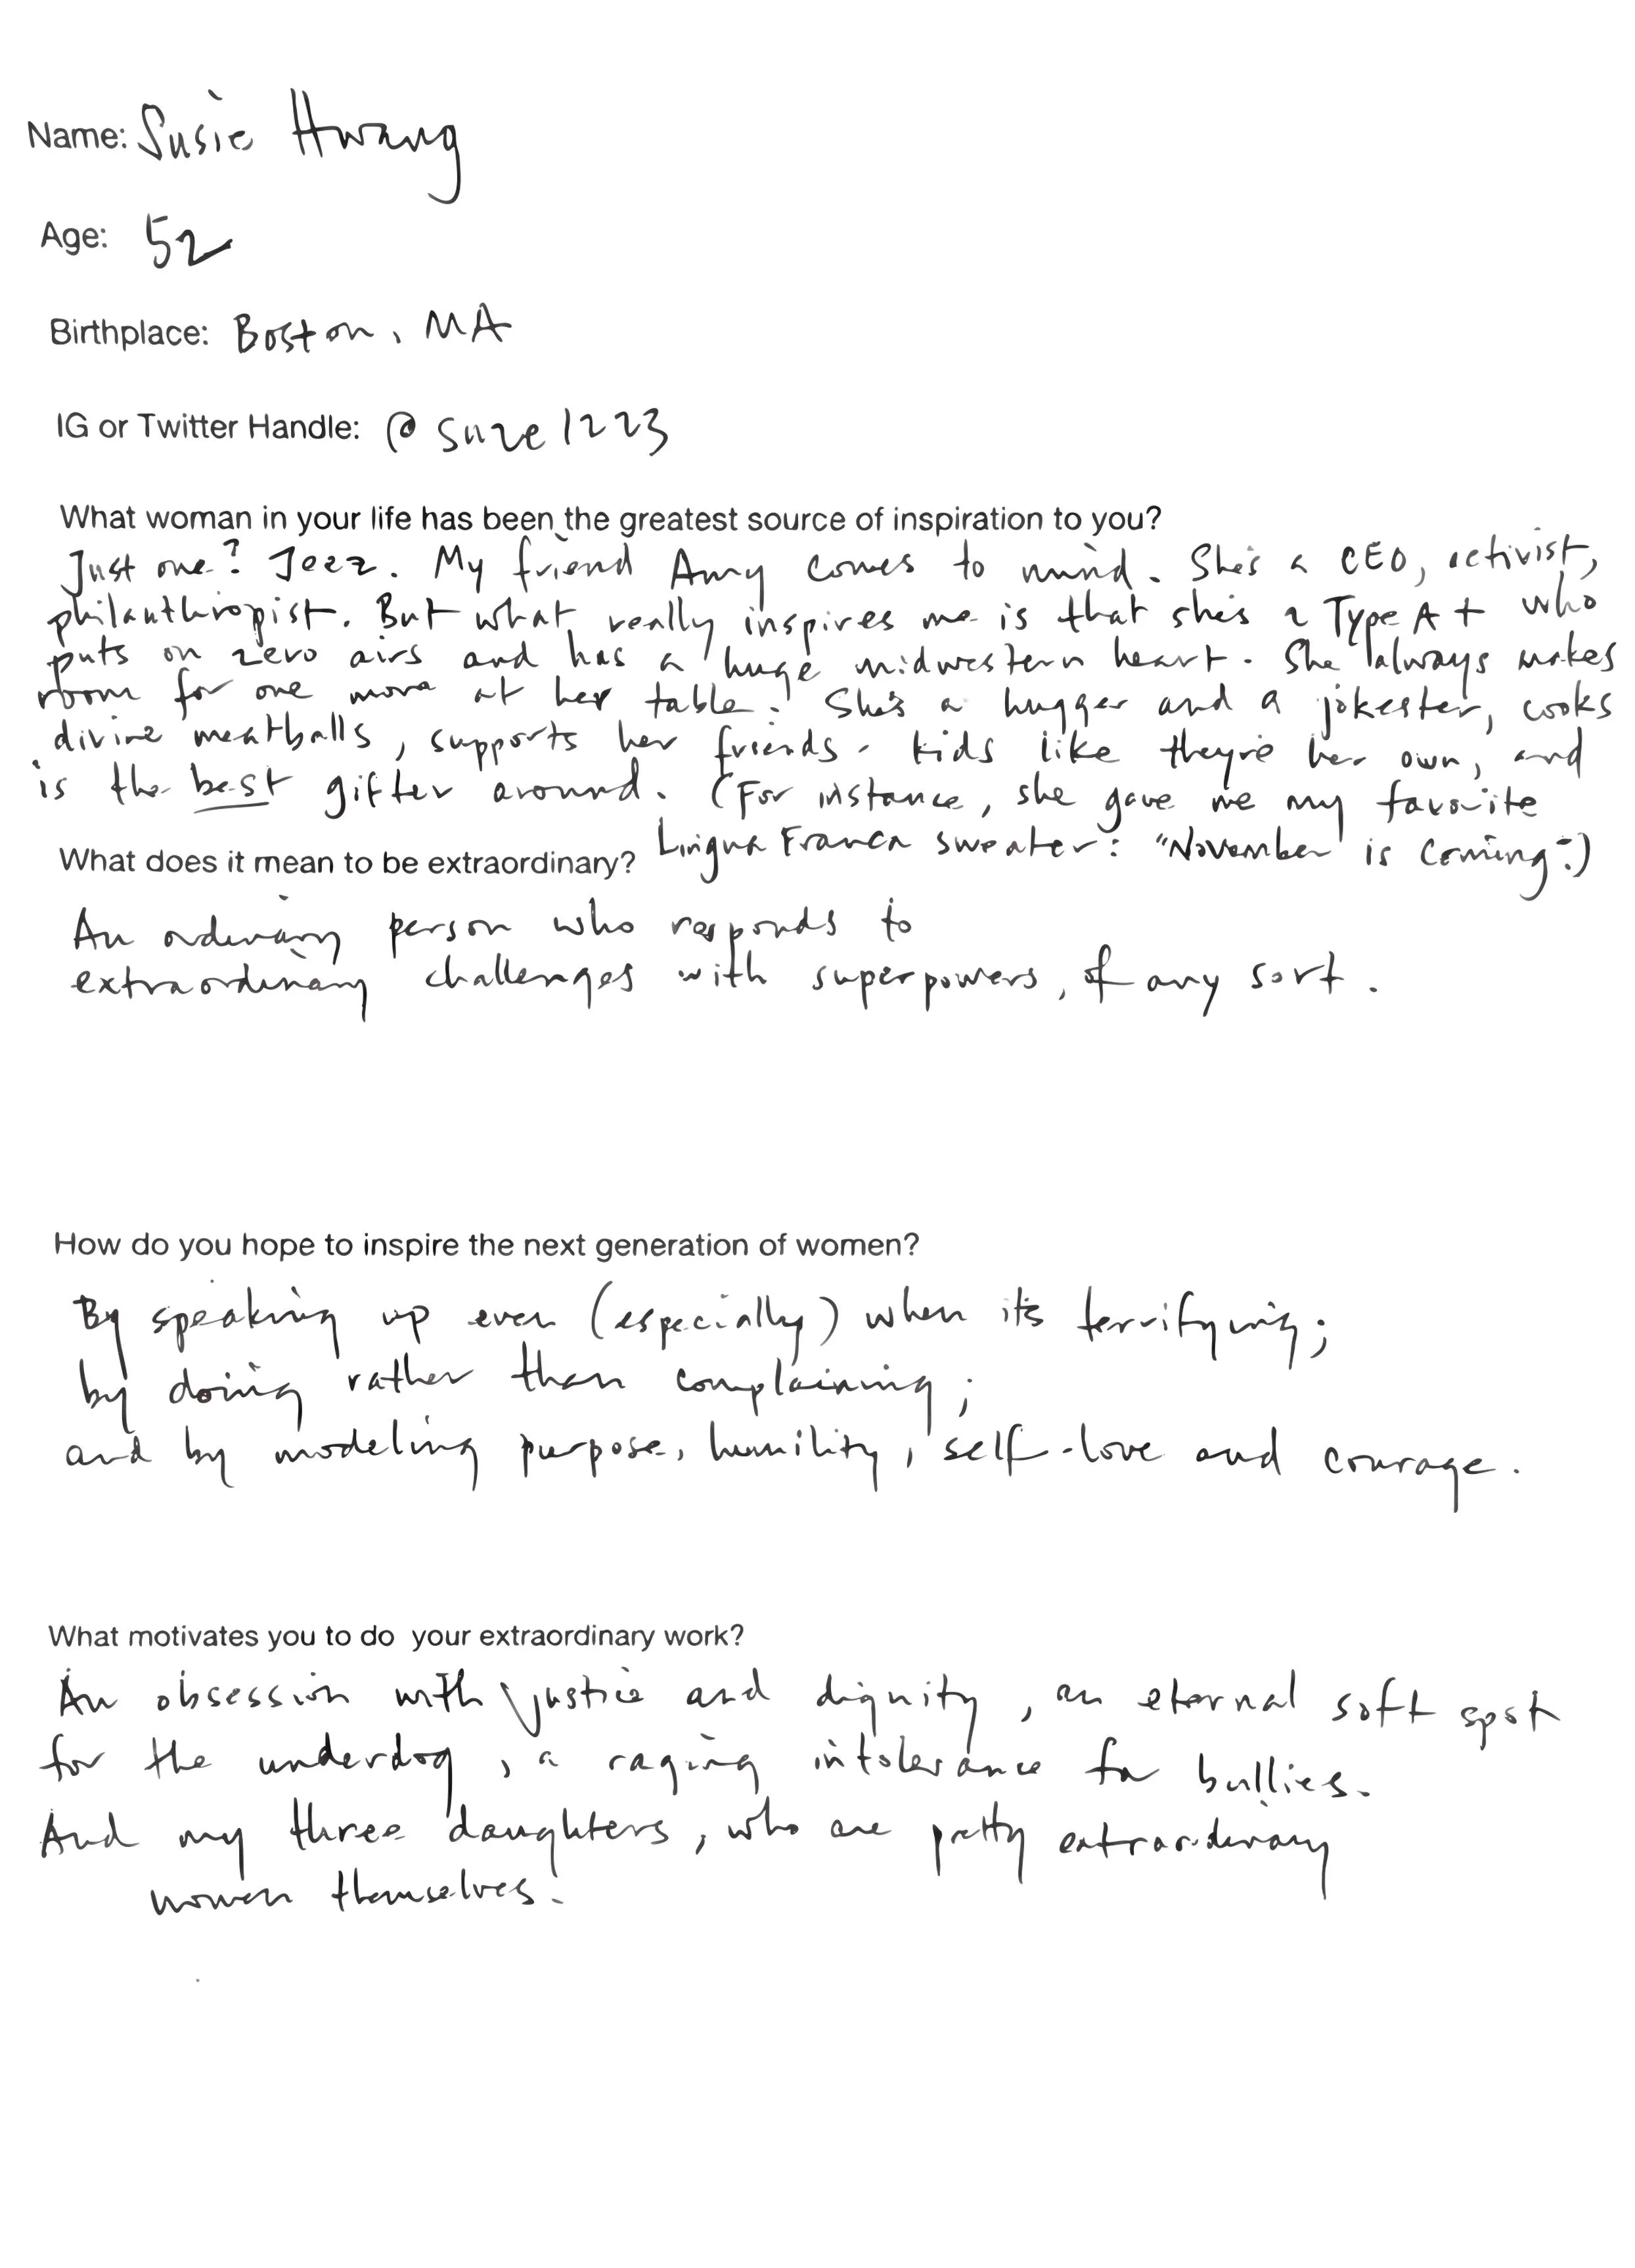 Name: Susie Hwang
Age: 52
Birthplace: Boston, MA
IG or Twitter Handle: @suze1223
What woman in your life has been the greatest source of inspiration to you?
Just one? Jeez. My friend Amy comes to mind. She's a CEO, activist,
philanthropist. But what really inspires me is that she's a Type A+ who
puts on zero airs and has a huge midwestern heart. She always makes
room for one more at her table. She's a hugger and a jokester, cooks
divine meatballs, supports her friends' kids like they're her own, and
is the best gifter around. (For instance, she gave me my favorite
Lingua Franca sweater: "November is Coming".)
What does it mean to be extraordinary?
An ordinary person who responds to
extraordinary challenges with superpowers, of any sort.
How do you hope to inspire the next generation of women?
By speaking up even (especially) when it's terrifying;
by doing rather than complaining;
and by modeling purpose, humility, self-love and courage.
What motivates you to do your extraordinary work?
An obsession with justice and dignity, an eternal soft spot
for the underdog, a raging intolerance for bullies.
And my three daughters, who are pretty extraordinary
women themselves.